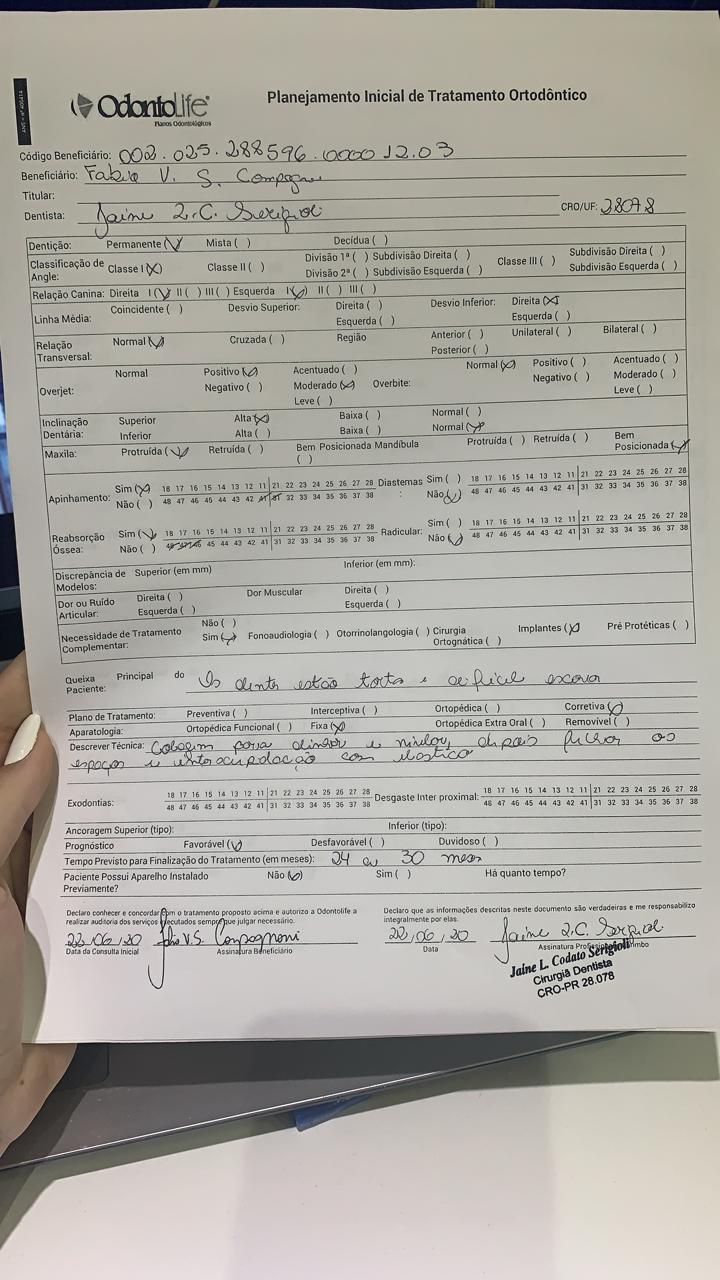 ANS - nº 405414
OdontoLife
Planos Odontológicos
Planejamento Inicial de Tratamento Ortodôntico
Código Beneficiário: 002.025.288596.0000 12.03
Beneficiário: Fabio V. S. Compagnoni
Titular:
Dentista: Jaine L.C. Serigioli CRO/UF: 28078
Dentição: Permanente (X) Mista ( ) Decídua ( )
Classificação de Angle: Classe I (X) Classe II ( ) Divisão 1ª ( ) Subdivisão Direita ( ) Classe III ( ) Subdivisão Direita ( )
Divisão 2ª ( ) Subdivisão Esquerda ( ) Subdivisão Esquerda ( )
Relação Canina: Direita I (X) II ( ) III ( ) Esquerda I (X) II ( ) III ( )
Linha Média: Coincidente ( ) Desvio Superior: Direita ( ) Desvio Inferior: Direita (X)
Esquerda ( ) Esquerda ( )
Relação Transversal: Normal (X) Cruzada ( ) Região Anterior ( ) Unilateral ( ) Bilateral ( )
Posterior ( )
Overjet: Normal Positivo (X) Acentuado ( ) Overbite: Normal (X) Positivo ( ) Acentuado ( )
Negativo ( ) Moderado (X) Negativo ( ) Moderado ( )
Leve ( ) Leve ( )
Inclinação Dentária: Superior Alta (X) Baixa ( ) Normal ( )
Inferior Alta ( ) Baixa ( ) Normal (X)
Maxila: Protruída (X) Retruída ( ) Bem Posicionada ( ) Mandíbula Protruída ( ) Retruída ( ) Bem Posicionada (X)
Apinhamento: Sim (X) 18 17 16 15 14 13 12 11 21 22 23 24 25 26 27 28 Diastemas: Sim ( ) 18 17 16 15 14 13 12 11 21 22 23 24 25 26 27 28
Não ( ) 48 47 46 45 44 43 42 41 31 32 33 34 35 36 37 38 Não (X) 48 47 46 45 44 43 42 41 31 32 33 34 35 36 37 38
Reabsorção Óssea: Sim (X) 18 17 16 15 14 13 12 11 21 22 23 24 25 26 27 28 Radicular: Sim ( ) 18 17 16 15 14 13 12 11 21 22 23 24 25 26 27 28
Não ( ) 48 47 46 45 44 43 42 41 31 32 33 34 35 36 37 38 Não (X) 48 47 46 45 44 43 42 41 31 32 33 34 35 36 37 38
Discrepância de Modelos: Superior (em mm) Inferior (em mm):
Dor ou Ruído Articular: Direita ( ) Dor Muscular Direita ( )
Esquerda ( ) Esquerda ( )
Necessidade de Tratamento Complementar: Não ( )
Sim (X) Fonoaudiologia ( ) Otorrinolangologia ( ) Cirurgia Ortognática ( ) Implantes (X) Pré Protéticas ( )
Queixa Principal do Paciente: Os dentes estão tortos e dificil escovar
Plano de Tratamento: Preventiva ( ) Interceptiva ( ) Ortopédica ( ) Corretiva (X)
Aparatologia: Ortopédica Funcional ( ) Fixa (X) Ortopédica Extra Oral ( ) Removível ( )
Descrever Técnica: Colagem para alinhar e nivelar, depois fechar os
espaços e intercuspidação com elastico
Exodontias: 18 17 16 15 14 13 12 11 21 22 23 24 25 26 27 28 Desgaste Inter proximal: 18 17 16 15 14 13 12 11 21 22 23 24 25 26 27 28
48 47 46 45 44 43 42 41 31 32 33 34 35 36 37 38 48 47 46 45 44 43 42 41 31 32 33 34 35 36 37 38
Ancoragem Superior (tipo): Inferior (tipo):
Prognóstico Favorável (X) Desfavorável ( ) Duvidoso ( )
Tempo Previsto para Finalização do Tratamento (em meses): 24 a 30 meses
Paciente Possui Aparelho Instalado Previamente? Não (X) Sim ( ) Há quanto tempo?
Declaro conhecer e concordar com o tratamento proposto acima e autorizo a Odontolife a
realizar auditoria dos serviços executados sempre que julgar necessário.
Declaro que as informações descritas neste documento são verdadeiras e me responsabilizo
integralmente por elas.
22,06,20 Fabio V.S. Compagnoni 22,06,20 Jaine L.C. Serigioli
Data da Consulta Inicial Assinatura Beneficiário Data Assinatura Profissional/Carimbo
Jaine L. Codato Serigioli
Cirurgiã Dentista
CRO-PR 28.078